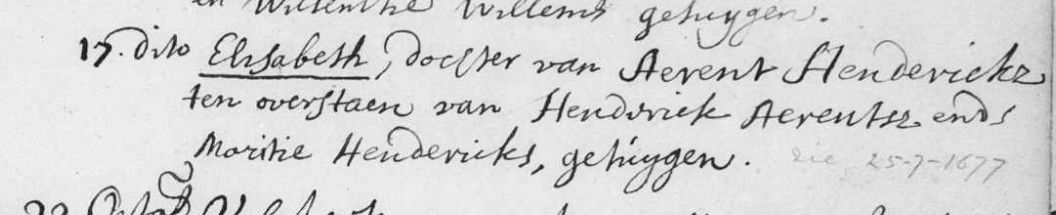 en Willemtie Willems getuygen.
17. dito Elisabeth, dochter van Aerent Henderickz
ten overstaen van Hendrick Aerentsz ende
Moritie Hendericks, getuygen. zie 25-7-1677